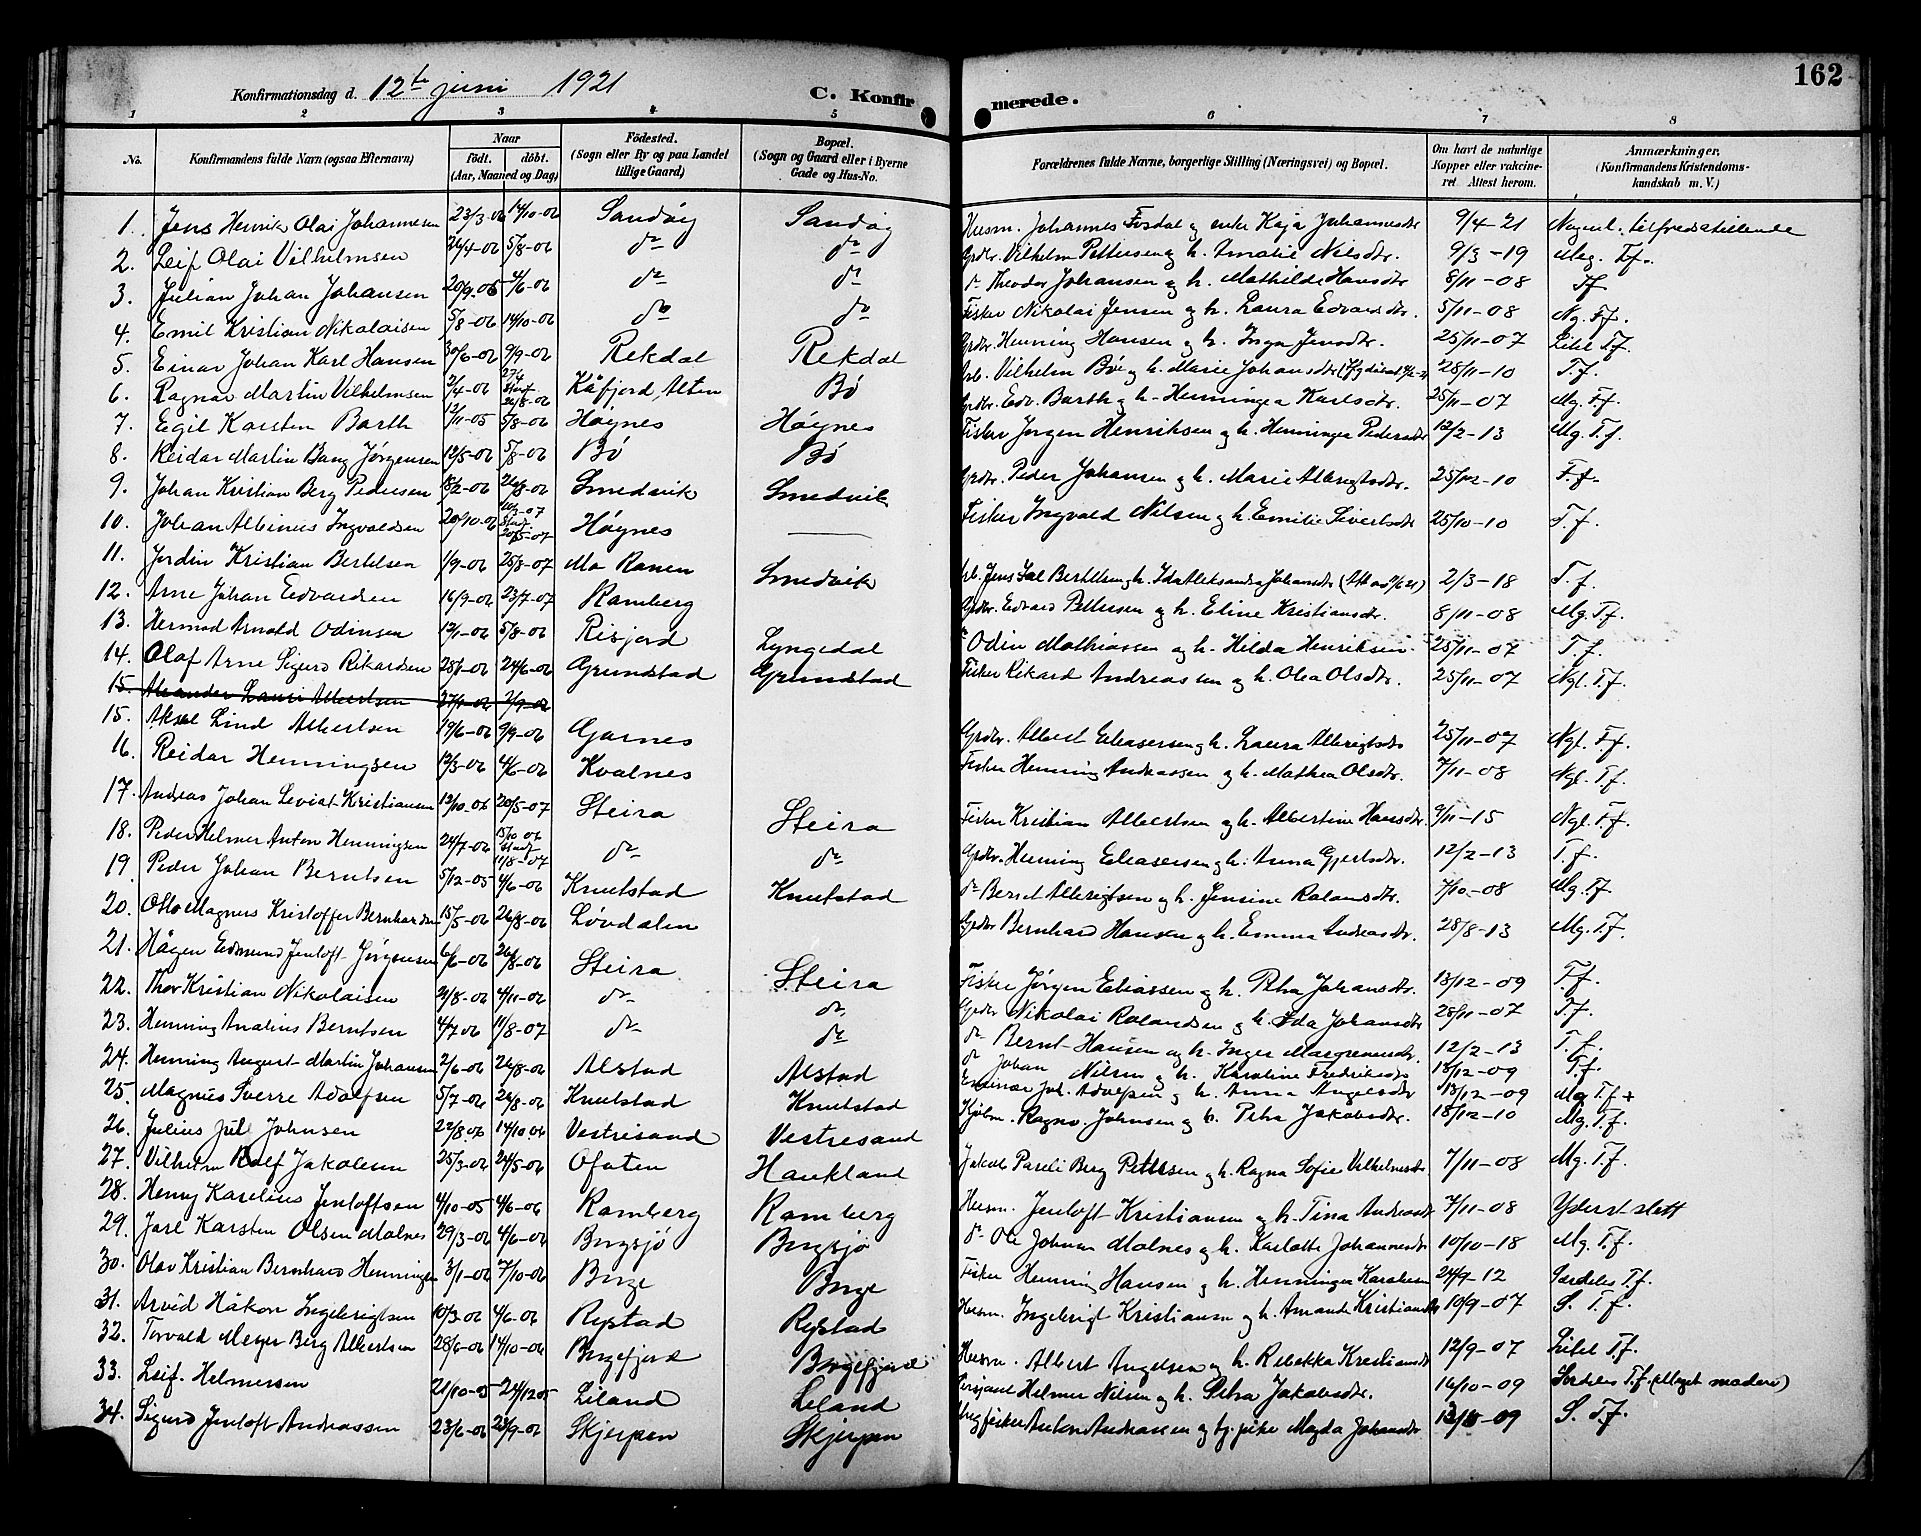 162
Konfirmationsdag d. 12te juni 1921
C. Konfirmerede.
1 2 3 4 5 6 7 8
No. Konfirmandens fulde Navn (ogsaa Efternavn) Naar födt. döbt. (Aar, Maaned og Dag) Födested. (Sogn eller By og paa Landet tillige Gaard) Bopæl. (Sogn og Gaard eller i Byerne Gade og Hus-No. Forældrenes fulde Navne, borgerlige Stilling (Næringsvei) og Bopæl. Om havt de naturlige Kopper eller vakcineret Attest herom. Anmærkninger, (Konfirmandens Kristendomskundskab m. V.)
1. Jens Henrik Olai Johannesen 23/3-06 14/10-06 Sandøy Sandøy Husm. Johannes Fosdal og enke Kaja Johannesdtr 9/4-21 Nogenl. tilfredsstillende
2. Leif Olai Vilhelmsen 26/4-06 5/8-06 do do Grdbr. Vilhelm Pettersen og h. Amalie Nilsdtr. 9/3-19 Meg. T.f.
3. Julian Johan Johansen 20/9-05 4/6-06 do do do Theodor Johansen og h. Mathilde Hansdtr 8/11-08 T.f
4. Emil Kristian Nikolaisen 5/8-06 14/10-06 do do Fisker Nikolai Jensen og h. Laura Edvardsdtr. 5/11-08 Ng. T.f.
5. Einar Johan Karl Hansen 30/6-06 9/9-06 Rekdal Rekdal Grdbr. Henning Hansen og h. Inga Jensdtr. 25/11-07 Litet T.f.
6. Ragnar Martin Vilhelmsen 2/4-06 Stadf. 26/8-06 Kåfjord, Alten Bø Arb. Vilhelm Bøe og h. Marie Johansdtr 28/11-10 T.f.
7. Egil Karsten Barth 12/11-05 5/8-06 Høynes Høynes Grdbr. Edv. Barth og h. Henningea Karlsdtr. 25/11-07 Mg. T.f.
8. Reidar Martin Bang Jørgensen 12/5-06 5/8-06 Bø Bø Fisker Jørgen Henriksen og h. Henningea Pedersdtr 12/2-13 Mg. T.f.
9. Johan Kristian Berg Pedersen 18/2-06 26/8-06 Smedvik Smedvik Grdbr. Peder Johansen og h. Marie Albrigtsdtr. 25/12-10 T.f.
10. Johan Albinus Ingvaldsen 20/10-06 Stadf. 20/5-07 Høynes Fisker Ingvald Nilsen og h. Emilie Sivertsdtr 25/10-10 T.f.
11. Jordin Kristian Bertelsen 1/9-06 25/8-07 Mo Ranen Smedvik Arb. Jens Bertelsen og h. Ida Aleksandra Johansdtr 2/3-18 T.f.
12. Arne Johan Edvardsen 16/9-06 23/7-07 Ramberg Grdbr. Edvard Pettersen og h. Eline Kristiansdtr. 8/11-08 Mg. T.f.
13. Hermod Arnold Odinsen 12/1-06 5/8-06 Risfjord Lyngedal do Odin Mathiassen og h. Hilda Henriksen 25/11-07 T.f.
14. Olaf Arne Sigurd Rikardsen 28/1-06 24/6-06 Grundstad Grundstad Fisker Rikard Andreassen og h. Olea Olsdtr. 25/11-07 Ngl. T.f.
15. Albertsen 27/1-06 2/9-06
15. Aksel Lind Albertsen 19/6-06 9/9-06 Garnes Grdbr. Albert Eliasersen og h. Laura Albrigtsdtr 25/11-07 Ngl. T.f.
16. Reidar Henningsen 12/3-06 4/6-06 Kvalnes Fisker Henning Andreassen og h. Mathea Olsdtr. 7/11-08 Ngl. T.f.
17. Andreas Johan Leviat Kristiansen 13/10-06 20/5-07 Steira Steira Fisker Kristian Albertsen og h. Albertine Hansdtr 9/11-15 Ngl. T.f.
18. Peder Helmer Anton Henningsen 24/7-06 15/10 06 Stadf. 11/8-07 do do Grdbr. Henning Eliasersen og h. Anna Gjertsdtr. 12/2-13 T.f.
19. Peder Johan Berntsen 5/12-05 4/6-06 Knutstad Knutstad do Bernt Albrigtsen og h. Jensine Rolansdtr. 7/10-08 Mg. T.f
20. Otto Magnus Kristoffer Bernhardsen 15/5-06 26/8-06 Løvdalen Grdbr Bernhard Hansen og h. Emma Andreasdtr. 28/8-13 Mg. T.f.
21. Hågen Edmund Jentoft Jørgensen 6/6-06 26/8-06 Steira Steira Fisker Jørgen Eliassen og h. Petra Johansdtr. 13/12-09 T.f.
22. Thor Kristian Nikolaisen 21/8-06 4/11-06 do do Grdbr Nikolai Rolandsen og h. Ida Johansdtr 28/11-07 T.f.
23. Henning Analius Berntsen 4/7 06 11/8-07 do do do Bernt Hansen og h. Inger Margrensdtr. 12/2-13 T.f.
24. Henning August Martin Johansen 2/6-06 26/8-06 Alstad Alstad do Johan Nilsen og h. Karoline Fredriksdtr 13/12-09 T.f.
25. Magnus Sverre Adolfsen 5/7-06 26/8-06 Knutstad Knutstad Joh. Adolfsen og h. Anna Angelsdtr 13/12-09 Mg T.f +
26. Julius Jul Johnsen 22/8 06 14/10 06 Vestresand Vestresand Kjøbm. Ragnv. Johnsen og h. Petra Jakobsdtr. 18/12-10 Mg. T.f.
27. Vilhelm Rolf Jakobsen 25/3-06 24/5-06 Ofoten Haukland Jakob Pareli Berg Pettersen og h. Ragna Sofie Vilhelmsdtr 7/11-08 Mg. T.f.
28. Henry Karelius Jentoftsen 4/10-05 4/6-06 Ramberg Ramberg Husm. Jentoft Kristiansen og h. Tina Andreasdtr 7/11-08 Yderst slett
29. Jarl Karsten Olsen Molnes 29/3-06 4/6-06 Borgsjø Borgsjø do Ole Johnsen Molnes og h. Karlotte Johannesdtr 10/10-18 Mg. T.f.
30. Olav Kristian Bernhard Henningsen 3/1-06 7/10-06 Borge Borge Fisker Henning Hansen og h. Henningea 24/9-12 Særdeles T.f.
31. Arvid Håkon Ingebrigtsen 10/3-06 4/6-06 Rystad Rystad Husm. Ingebrigt Kristiansen og h. Amanda Kristiansdtr 10/9-07 S. T.f.
32. Torvald Meyer Berg Albertsen 28/6-06 14/10-06 Borgefjord Borgefjord Husm. Albert Angelsen og h. Rebekka Kristiansdtr 12/9-07 Litet T.f.
33. Leif Helmersen 21/10-05 24/12 05 Liland Leland Helmer Nilsen og h. Petra Jakobsdtr. 16/10-09 Særdeles T.f.
34. Sigurd Jentoft Andreassen 23/6-06 23/9-06 Skjerpen Skjerpen Ungfisker Anton Andreassen og tj. pike Magda Johansdtr -09 S. T.f.